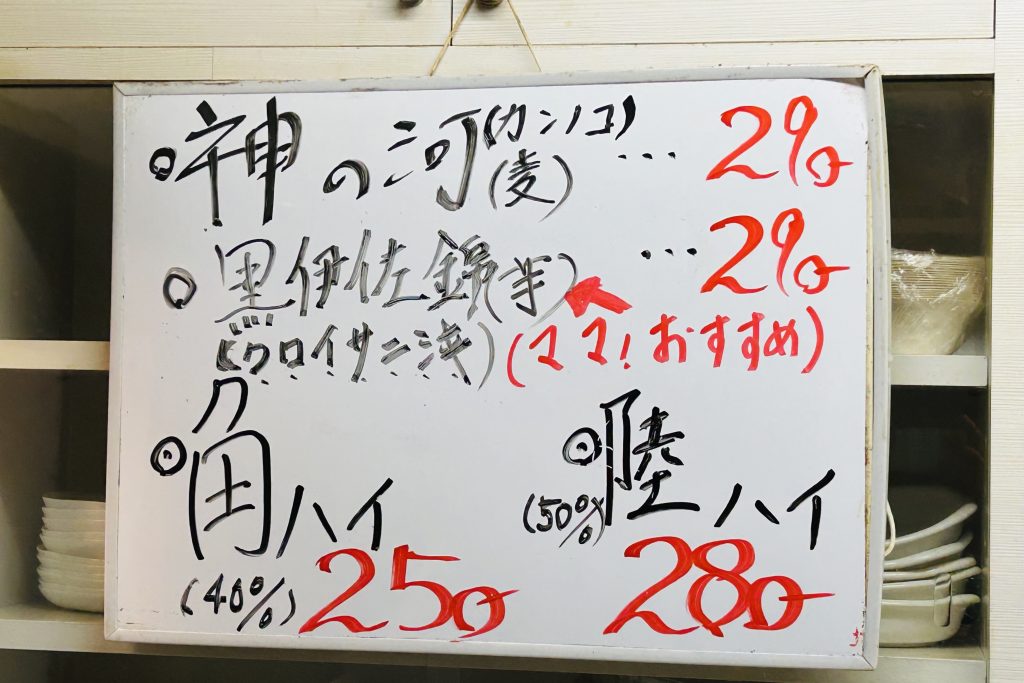 ◉神の河(カンノコ)(麦)…290
◉黒伊佐錦(芋)…290
(クロイサニシキ)(ママ!おすすめ)
◉角ハイ(40%)250
◉陸ハイ(50%)280